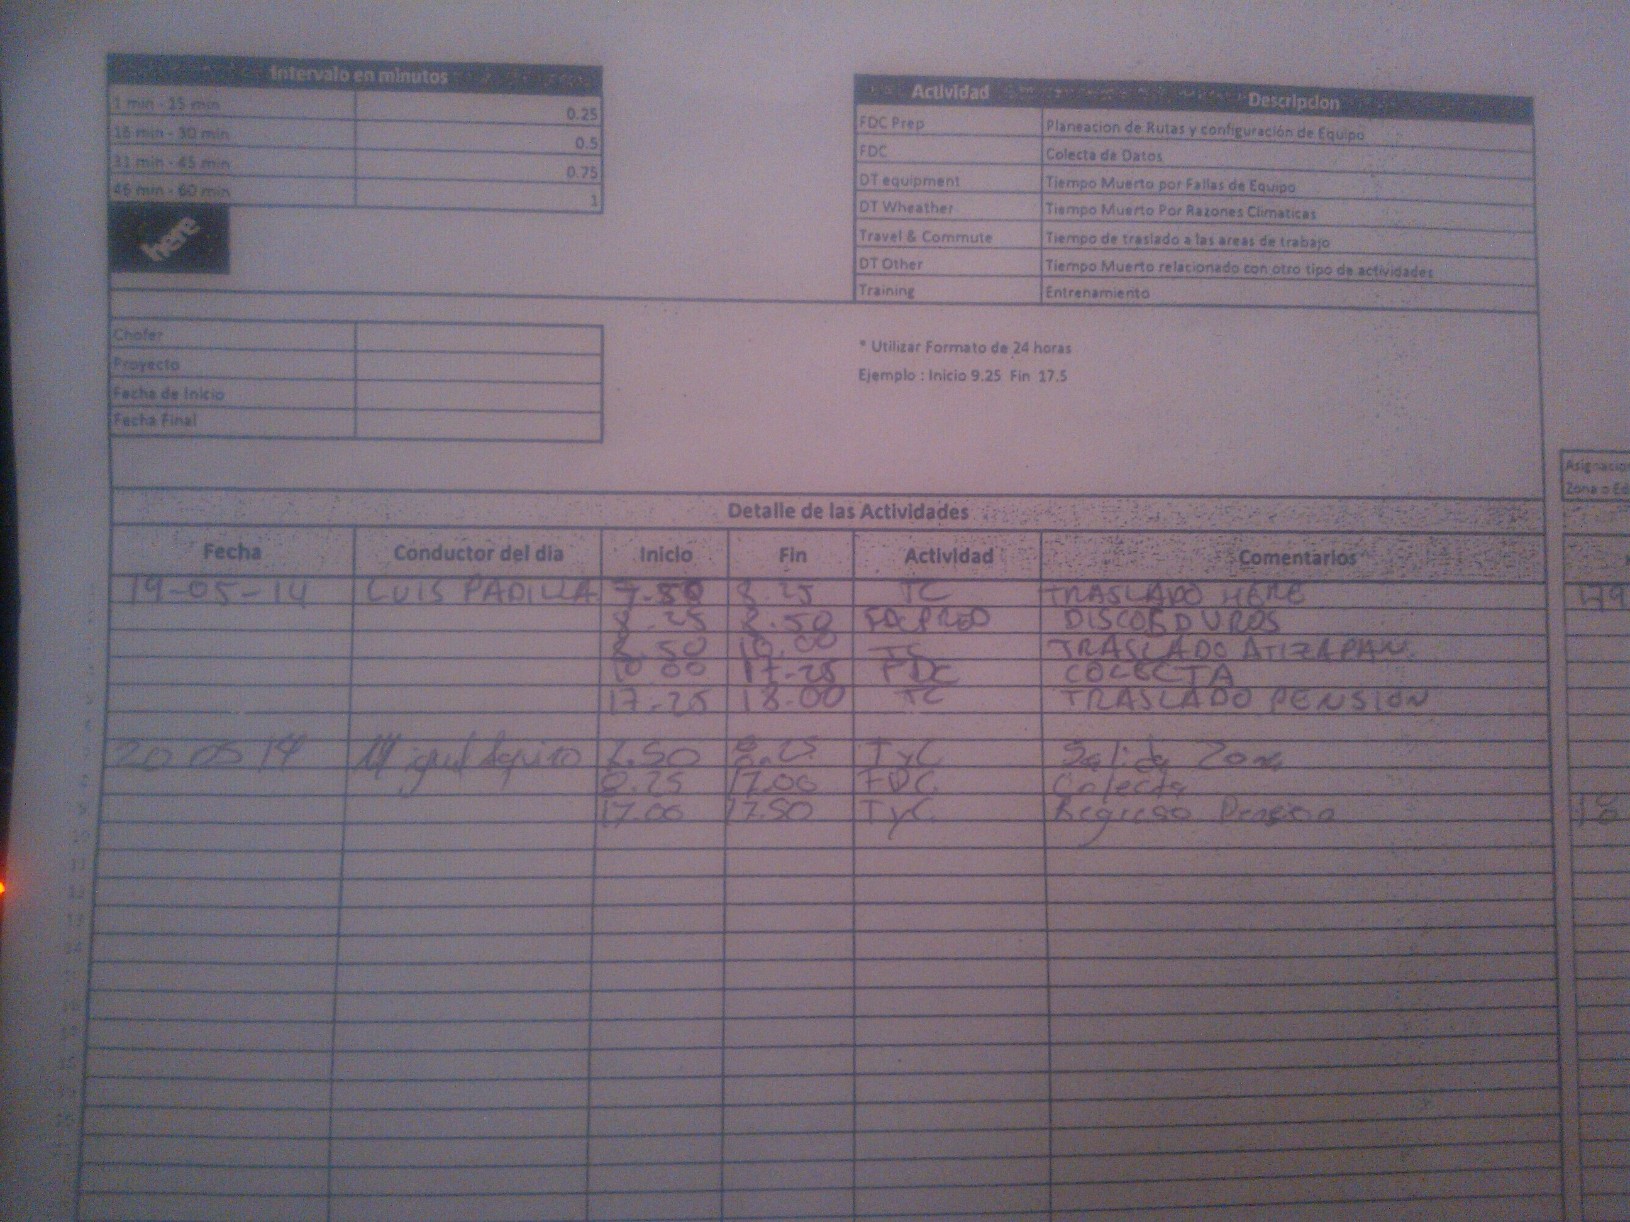 Intervalo en minutos
1 min - 15 min 0.25
16 min - 30 min 0.5
31 min - 45 min 0.75
46 min - 60 min 1
here
Actividad Descripcion
FDC Prep Planeacion de Rutas y configuración de Equipo
FDC Colecta de Datos
DT equipment Tiempo Muerto por Fallas de Equipo
DT Wheather Tiempo Muerto Por Razones Climaticas
Travel & Commute Tiempo de traslado a las areas de trabajo
DT Other Tiempo Muerto relacionado con otro tipo de actividades
Training Entrenamiento
Chofer
Proyecto
Fecha de Inicio
Fecha Final
* Utilizar Formato de 24 horas
Ejemplo : Inicio 9.25 Fin 17.5
Zona o
Detalle de las Actividades
Fecha Conductor del dia Inicio Fin Actividad Comentarios
19-05-14 LUIS PADILLA 7.50 8.25 TC TRASLADO HERE
8.25 8.50 DISCOS DUROS
8.50 10.00 TC TRASLADO ATIZAPAN.
10.00 17.25 FDC COLECTA
17.25 18.00 TC TRASLADO PENSION
20 05 14 7.50 8.25 TyC Salida Zona
8.25 17.00 FDC Colecta
17.00 17.50 TyC Regreso Pension